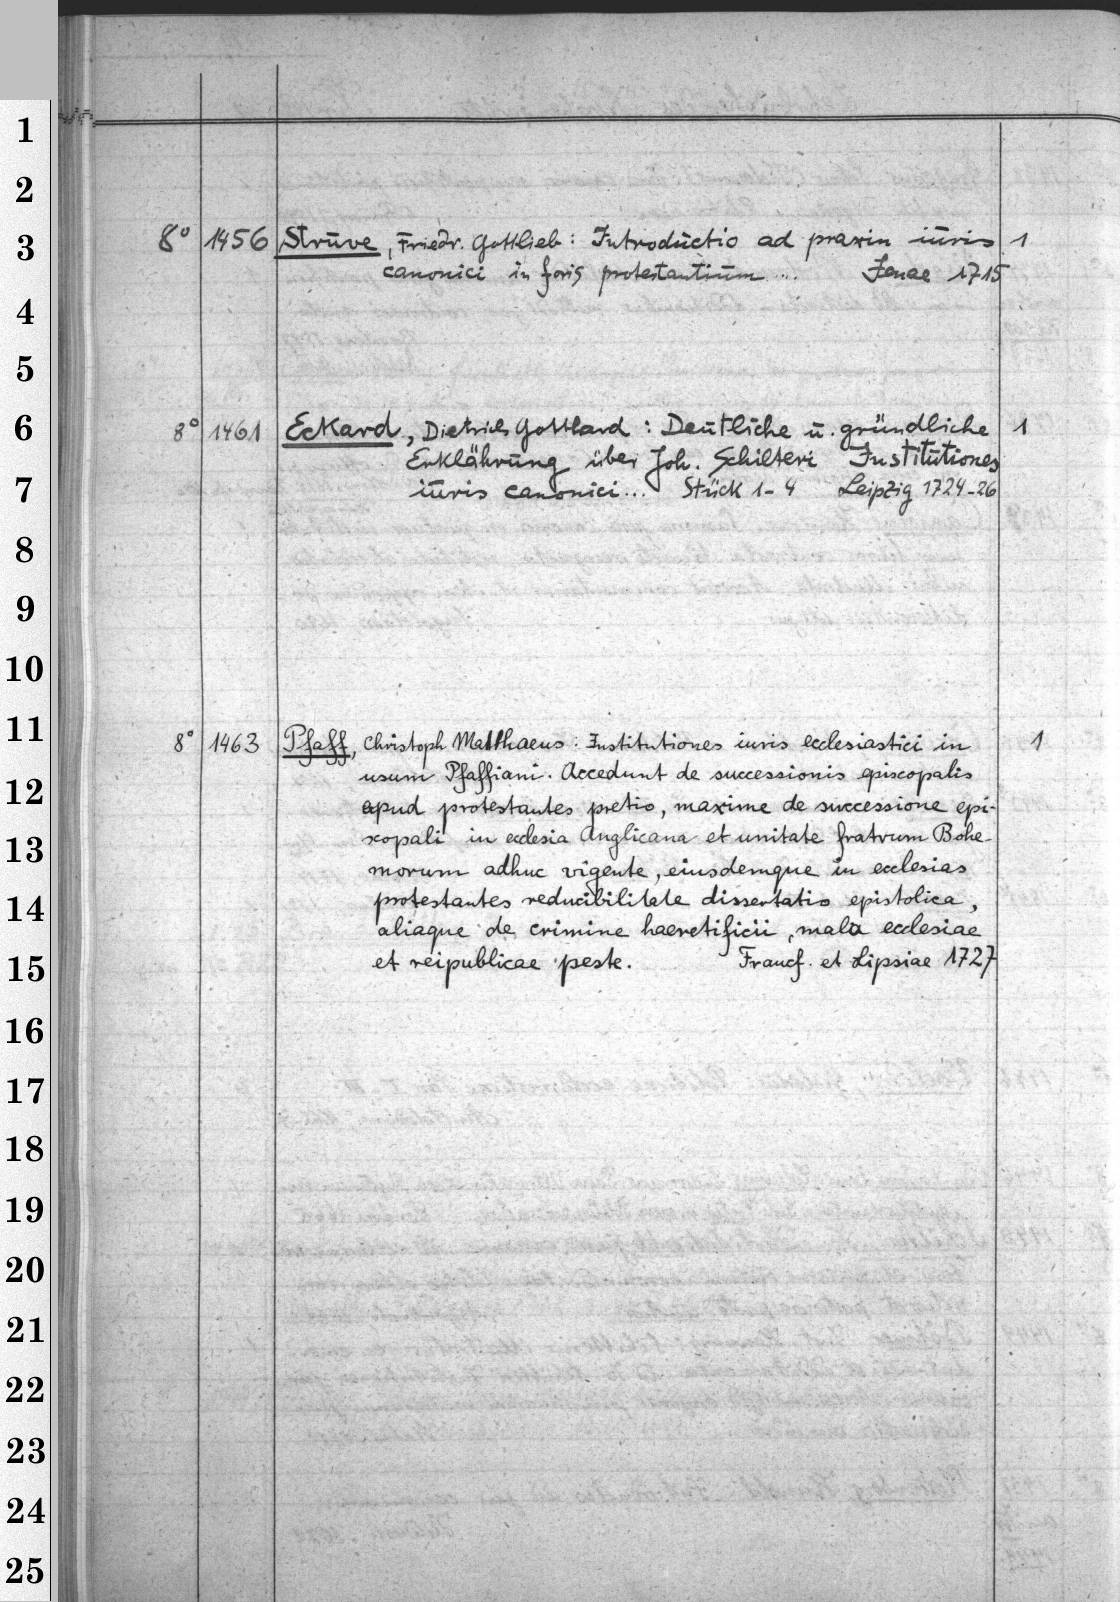 1
2
3
4
5
6
7
8
9
10
11
12
13
14
15
16
17
18
19
20
21
22
23
24
25
8° 1456 Struve, Friedr. Gottlieb: Introductio ad praxin iuris 1
canonici in foris protestantium ... Jenae 1715
8° 1461 Eckard, Dietrich Gotthard: Deutliche u. gründliche 1
Erklährung über Joh. Schilteri Institutiones
iuris canonici... Stück 1-4 Leipzig 1724-26
8° 1463 Pfaff, Christoph Matthaeus: Institutiones iuris ecclesiastici in 1
usum Pfaffiani. Accedunt de successionis episcopalis
apud protestantes pretio, maxime de successione epi-
scopali in ecclesia Anglicana et unitate fratrum Bohe-
morum adhuc vigente, eiusdemque in ecclesias
protestantes reducibilitate dissertatio epistolica,
aliaque de crimine haeretificii, mala ecclesiae
et reipublicae peste. Francf. et Lipsiae 1727